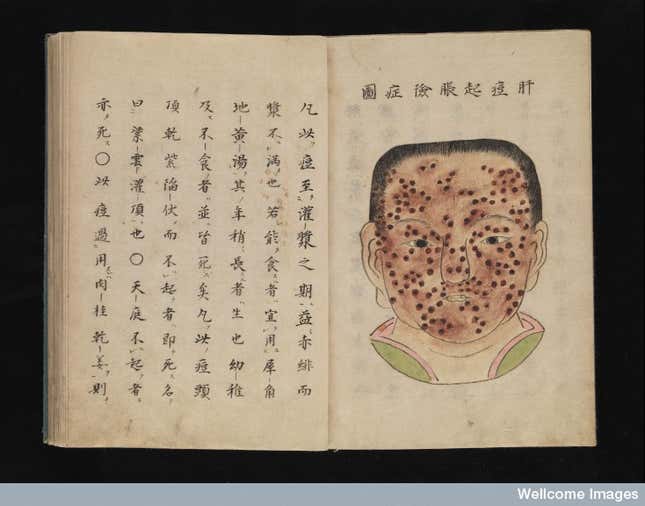 肝痘起脹險症圖
凡此痘至灌漿之期益赤緋而
漿不滿也若能食者宜用犀角
地黃湯其年稍長者生也幼稚
及不食者並皆死矣凡此痘頭
頂乾紫陷伏而不起者即死名
曰紫雲灌頂也〇天庭不起者
亦死〇此痘過用肉桂乾姜則
Wellcome Images